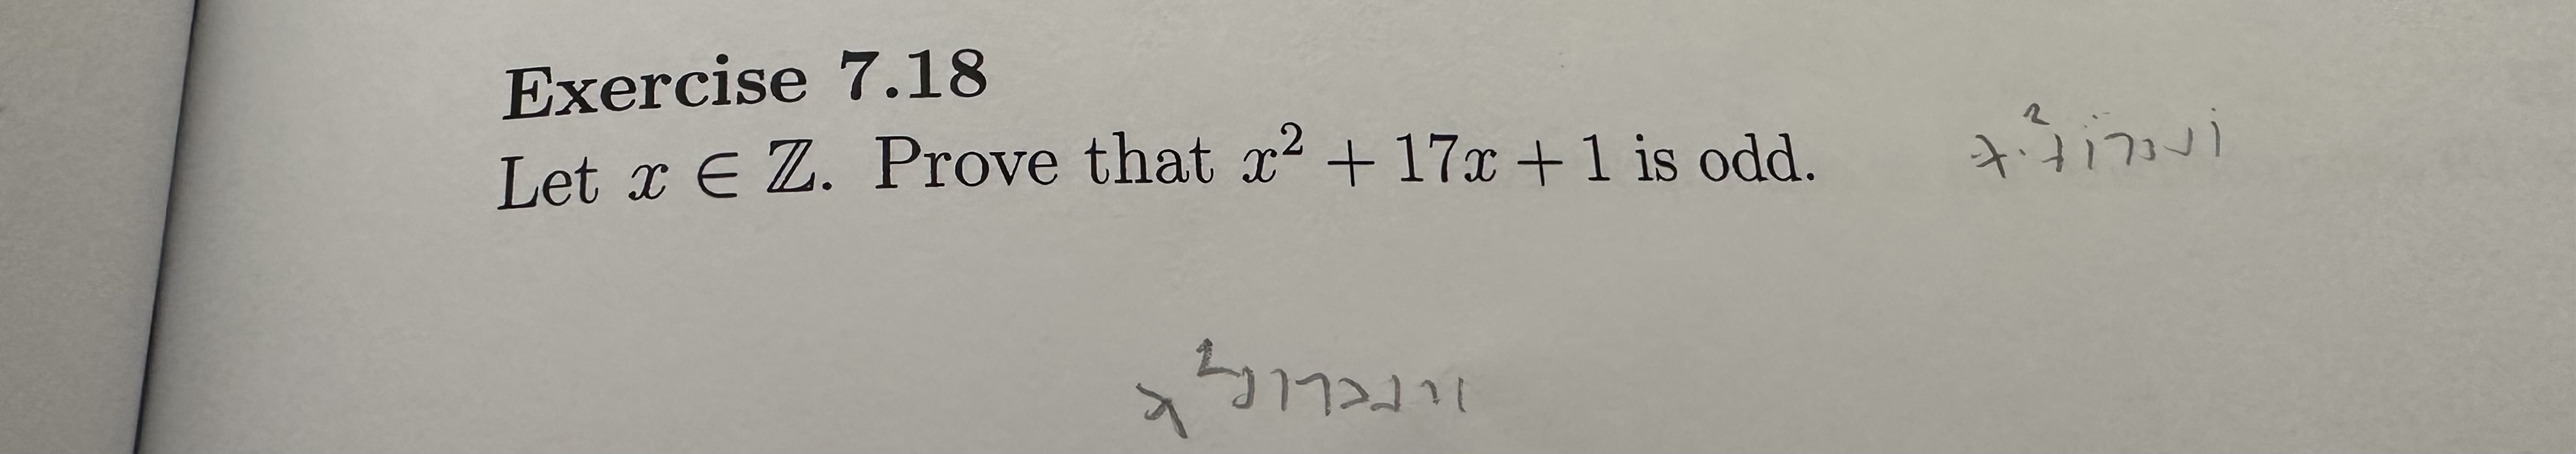 Exercise 7.18
Let x ∈ ℤ. Prove that x² + 17x + 1 is odd.